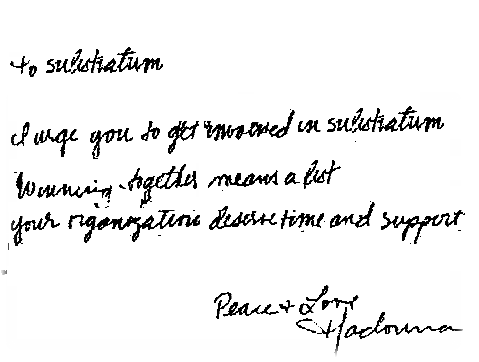 to substratum
I urge you to get involved in substratum
Winning together means a lot
your organization deserve time and support
Peace + Love
Madonna